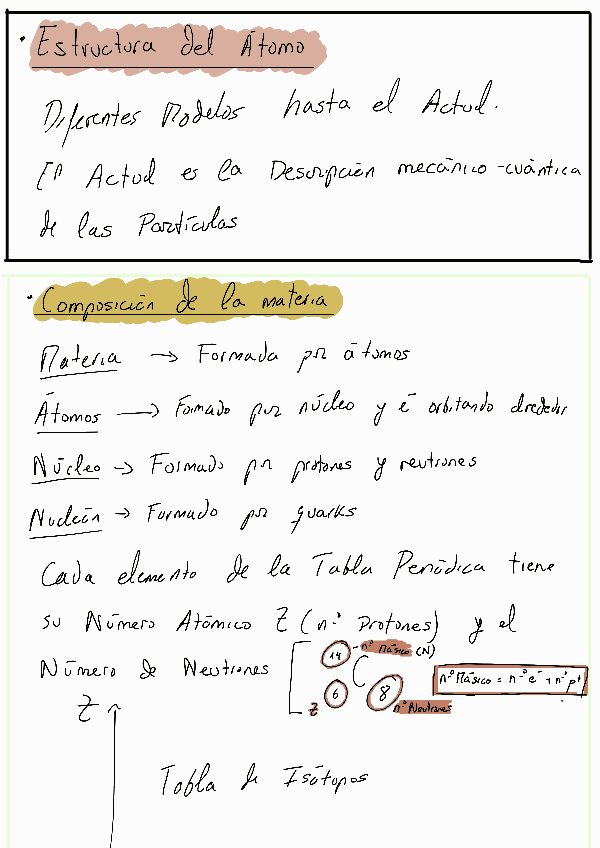 • Estructura del Átomo
Diferentes Modelos hasta el Actual.
El Actual es la Descripción mecánico-cuántica
de las Partículas
• Composición de la materia
Materia → Formada por átomos
Átomos → Formado por núcleo y e⁻ orbitando alrededor
Núcleo → Formado por protones y neutrones
Nucleón → Formado por quarks
Cada elemento de la Tabla Periódica tiene
su Número Atómico Z (nº Protones) y el
Número de Neutrones
14 - nº Másico (N)
C
6 8
Z nº Neutrones
nº Másico = nº e⁻ + nº p⁺
Z
Tabla de Isótopos